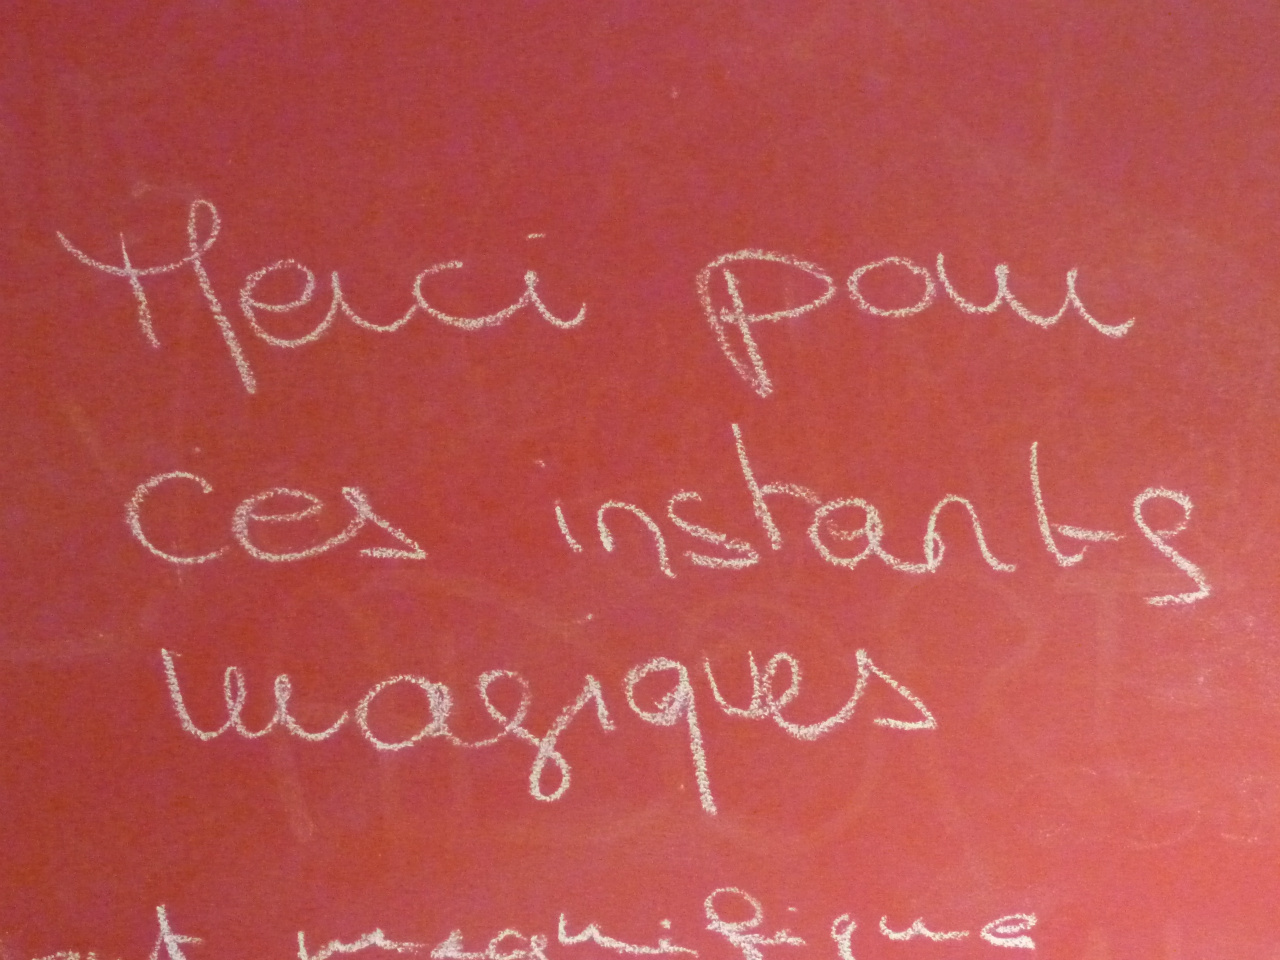 Merci pour
ces instants
magiques
magnifique